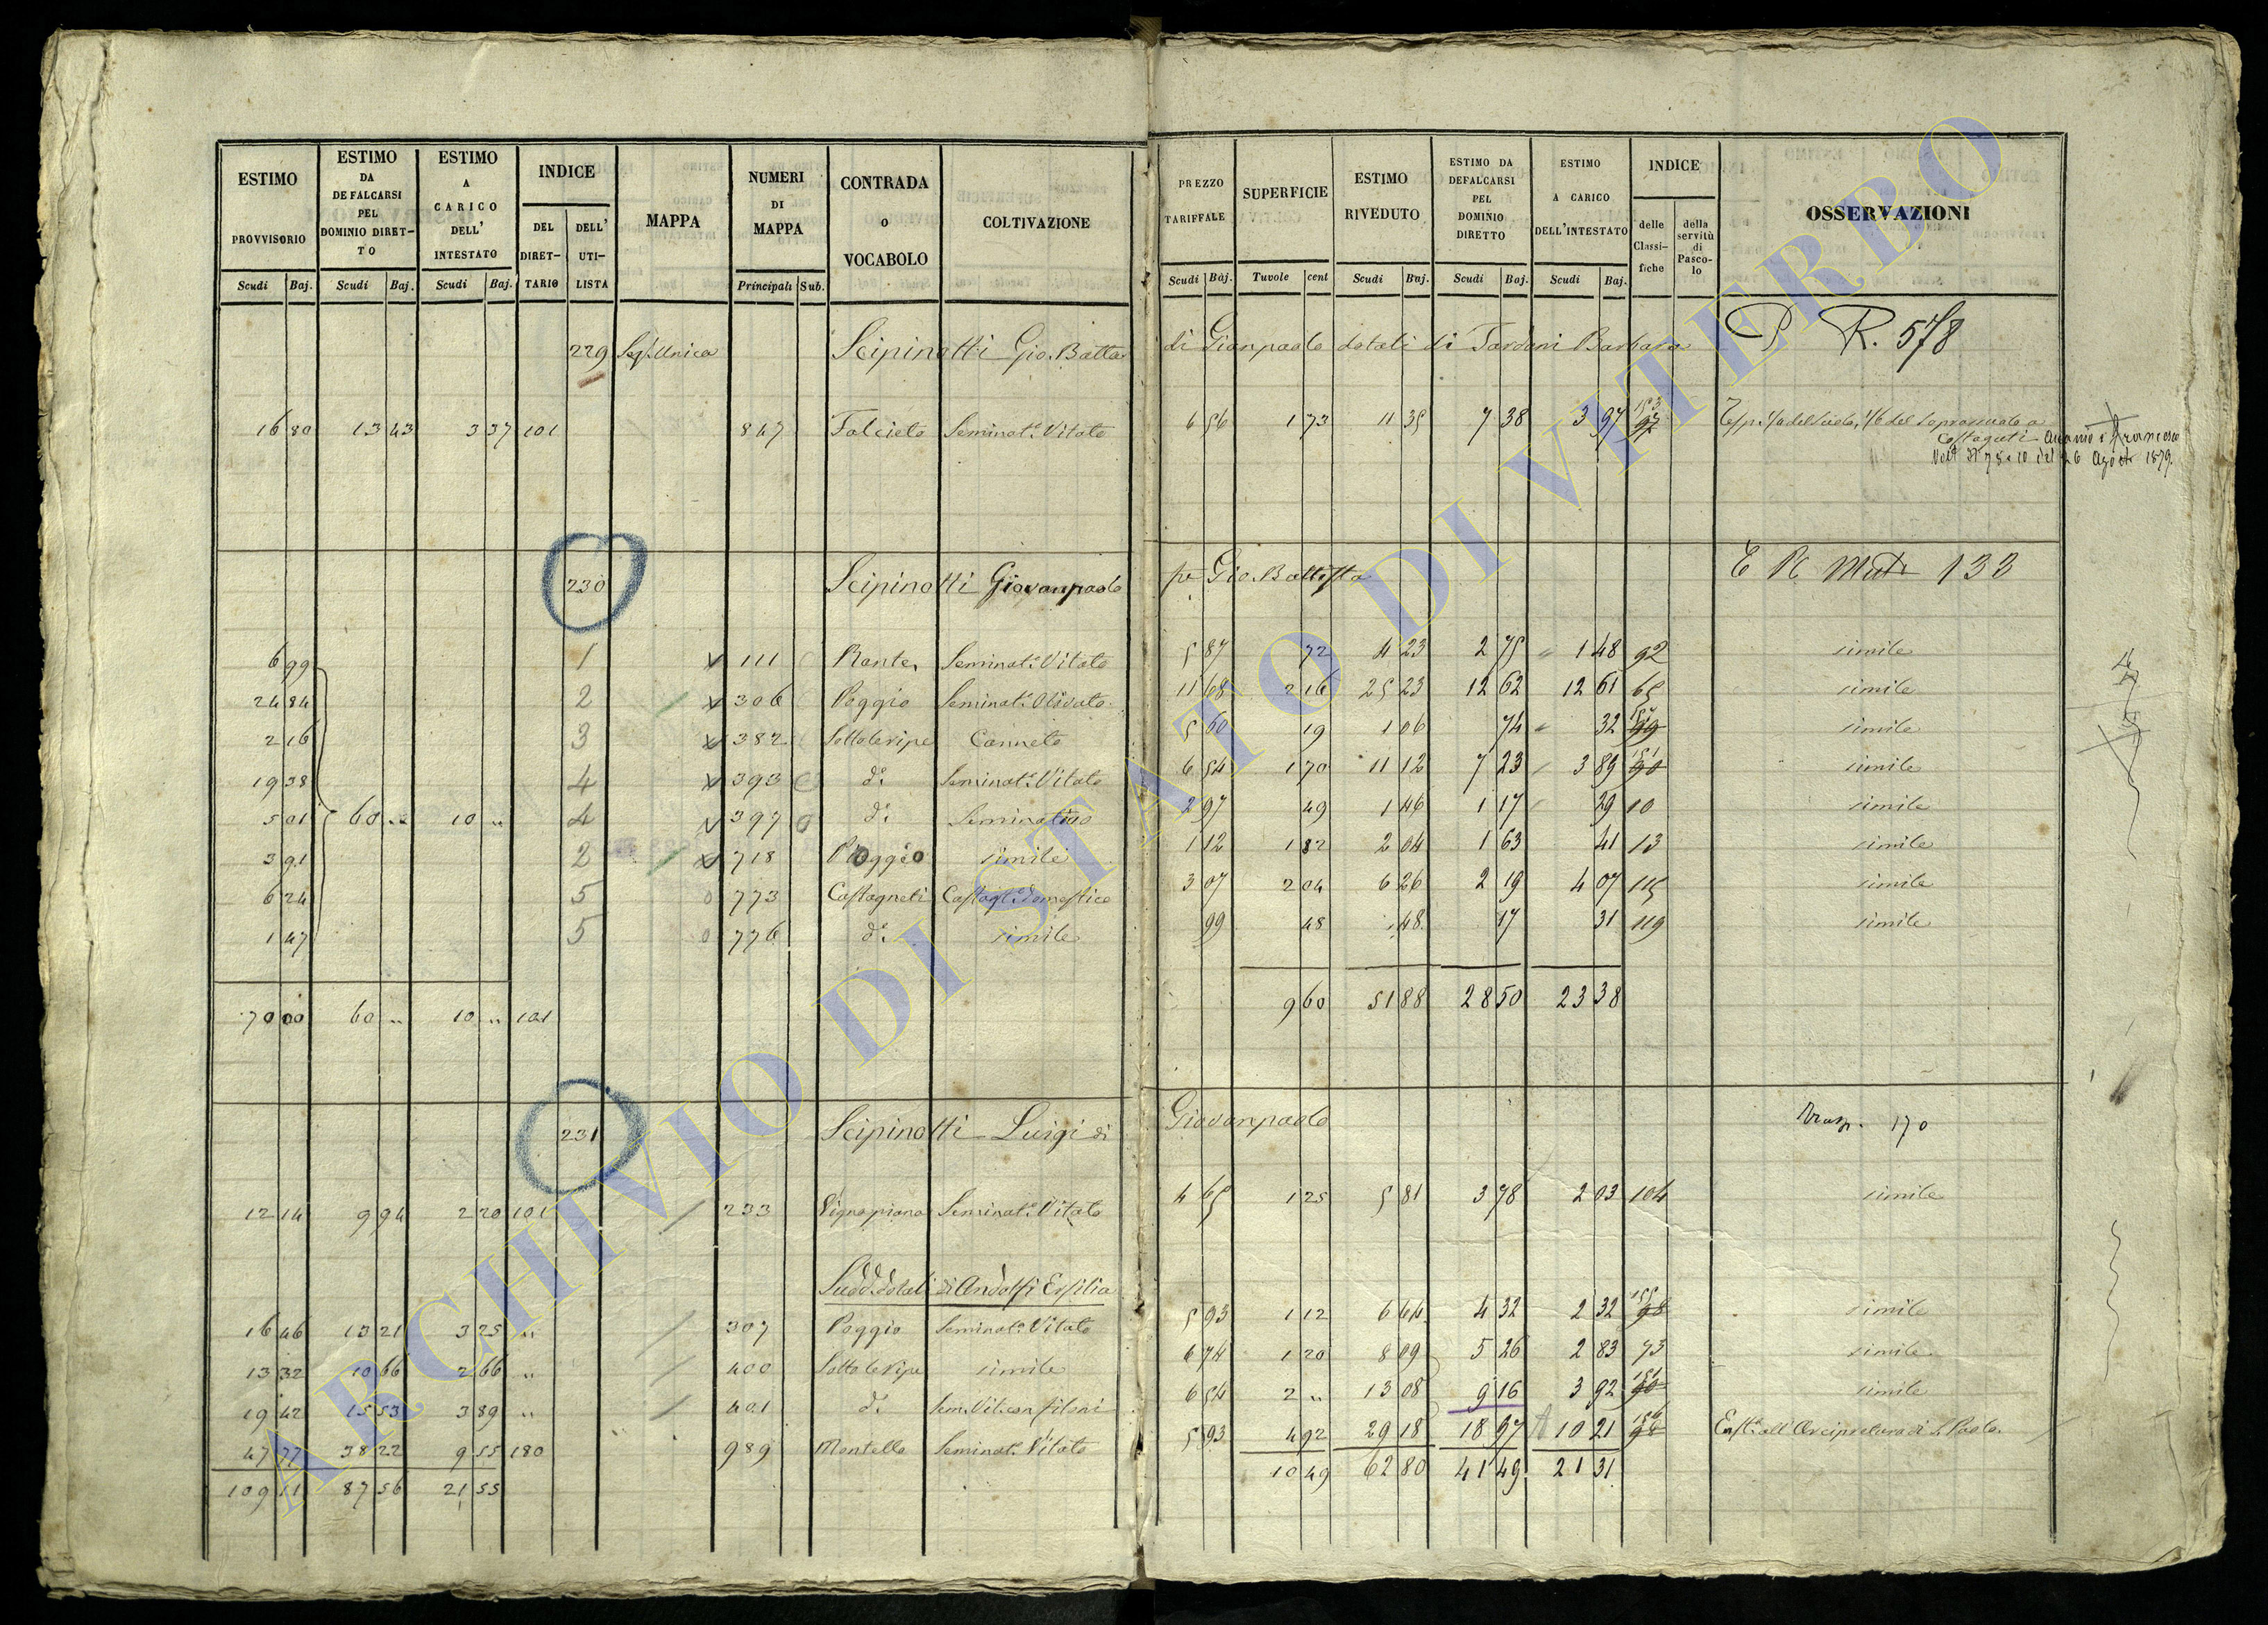 ESTIMO PROVVISORIO Scudi Baj.
ESTIMO DA DEFALCARSI PEL DOMINIO DIRETTO Scudi Baj.
ESTIMO A CARICO DELL' INTESTATO Scudi Baj.
INDICE DEL DIRETTARIO DELL' UTILISTA
MAPPA
NUMERI DI MAPPA Principali Sub.
CONTRADA o VOCABOLO
COLTIVAZIONE
PREZZO TARIFFALE Scudi Baj.
SUPERFICIE Tavole cent
ESTIMO RIVEDUTO Scudi Baj.
ESTIMO DA DEFALCARSI PEL DOMINIO DIRETTO Scudi Baj.
ESTIMO A CARICO DELL'INTESTATO Scudi Baj.
INDICE delle Classifiche della servitù di Pascolo
OSSERVAZIONI
229 Unica Scipinotti Gio. Batta di Gianpaolo dotali di Tardani Barbara R. 578
16 80 13 43 3 37 101 847 Falcieto Seminat.o Vitato 6 56 1 73 11 35 7 38 3 97 153 97
Antonio e Francesco
26 Agosto 1879.
230 Scipinotti Giovanpaolo Gio. Battista 133
6 99 1 111 Seminat.o Vitato 5 87 72 4 23 2 75 1 48 92 simile
24 84 2 306 Poggio Seminat.o Olivato 11 68 2 16 25 23 12 62 12 61 65 simile
2 16 3 382 Sottoleripe Canneto 5 60 19 1 06 74 32 99 simile
19 38 4 393 d.o Seminat.o Vitato 6 54 1 70 11 12 7 23 3 89 151 90 simile
5 01 60 " 10 " 4 397 d.o Seminativo 2 97 49 1 46 1 17 29 10 simile
3 91 2 718 Poggio simile 1 12 1 82 2 04 1 63 41 13 simile
6 24 5 773 Castagneti Castag.to domestico 3 07 2 04 6 26 2 19 4 07 115 simile
1 47 5 776 d.o simile 99 48 48 17 31 119 simile
70 00 60 " 10 " 101 9 60 51 88 28 50 23 38
231 Scipinotti Luigi di Giovanpaolo 170
12 14 9 94 2 20 101 233 Vignapiana Seminat.o Vitato 4 65 1 25 5 81 3 78 2 03 104 simile
Sudd. dotali di Andolfi Ersilia
16 46 13 21 3 25 " 307 Poggio Seminat.o Vitato 5 93 1 12 6 64 4 32 2 32 155 98 simile
13 32 10 66 2 66 " 400 Sottoleripe simile 6 74 1 20 8 09 5 26 2 83 73 simile
19 42 15 53 3 89 " 401 d.o Sem. Vit. con filoni 6 54 2 " 13 08 9 16 3 92 151 90 simile
47 77 38 22 9 55 180 989 Montello Seminat.o Vitato 5 93 4 92 29 18 18 97 10 21 98 Enf.ta all'Arcipretura di S. Paolo.
109 11 87 56 21 55 10 49 62 80 41 49 21 31
ARCHIVIO DI STATO DI VITERBO